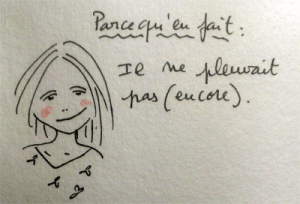 Parce qu'en fait :
Il ne pleuvait
pas (encore).